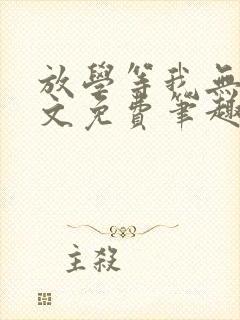 放學等我無
文免費筆趣
主殺